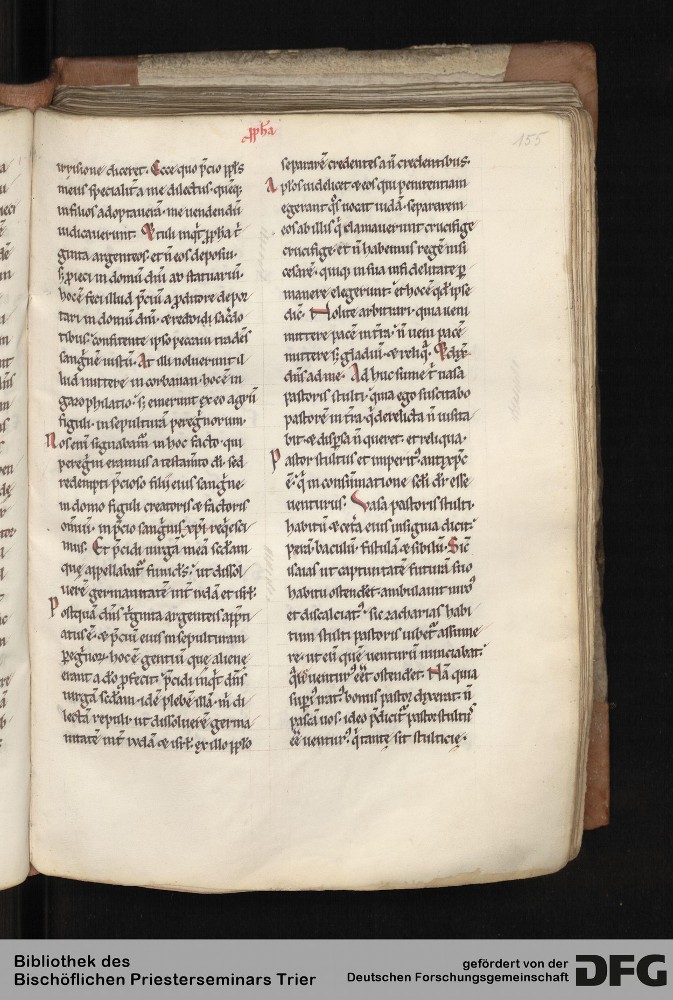 ꝓph̄a
155
irrisione diceret. Ecce quo p̄cio ppl̄s
meus specialit̄ a me dilectus. queq;
in filios adoptaverā. me vendendū
iudicaverunt. Et tuli inqt̄ ꝓph̄a t̄
ginta argenteos. et n̄ eos deposui.
s; ꝓieci in domū dn̄i ad statuariū.
hoc ē feci illud p̄ciū a ꝓditore depor
tari in domū dn̄i. & reddidi sac̄do
tibus confitente ipso peccavi tradēs
sangīnē iustū. At illi noluerunt il
lud mittere in corbanan. hoc ē in
gazophilatio. s; emerunt ex eo agrū
figuli. in sepulturā peregrinorum.
Nos eni signabam̄ in hoc facto. qui
peregini eramus a testam̄to di. sed
redempti p̄cioso filii eius sangīne
in domo figuli creatoris & factoris
omniū. in p̄cio sangīnis xp̄i reqesci
mus. Et p̄cidi virgā meā scd̄am
que appellabat funicl̄s. ut dissol
verē germanitatē int̄ iudā et isrl̄.
Postquā dn̄s t̄ginta argenteis app̄ti
atus ē. & p̄ciū eius in sepulturam
peregīnoꝝ. hoc ē gentiū que aliene
erant a dō ꝓfecit. p̄cidi inqt̄ dn̄s
virgā scd̄am. idē plebē illā m̄ di
lectā repuli. ut dissolverē germa
nitatē int̄ iudā & isrl̄. ex illo ppl̄o
separarē credentes a n̄ credentibus.
Aplos videlicet & eos qui penitentiam
egerant. q̄s vocat iudā. separarem
eos ab illis q̄ clamaverunt crucifige
crucifige. et n̄ habemus regē nisi
cesarē. quiq; in sua infidelitate ꝑ
manere elegerunt. et hoc ē qd̄ ipse
dic̄. Nolite arbitrari. quia veni
mittere pacē in t̄ra. n̄ veni pacē
mittere s; gladiū. & reliq̄. Et dix̄
dn̄s ad me. Adhuc sume t̄ vasa
pastoris stulti. quia ego suscitabo
pastorē in t̄ra. q̄ derelicta n̄ visita
bit. & dispsa n̄ queret. et reliqua.
Pastor stultus et imperit᷒ antixp̄c
ē. q̄ in consūmatione scl̄i dr̄ esse
venturus. Vasa pastoris stulti.
habitū & cet̄a eius insignia dicit.
perā. baculū. fistulā & sibilū. Sic̄
isaias ut captivitatē futurā suo
habitu ostendet. ambulavit nud᷒
et discalciat᷒. sic zacharias habi
tum stulti pastoris iubet assume
re. ut eū quē venturū nunciabat.
qīs ventur᷒ eēt ostendet. Nā quia
supi᷒ nat᷒ bonus pastor dixerat. n̄
pascā vos. ideo p̄dicit pastor stult᷒
eē ventur᷒. q̄ tante sit stulticie.
Bibliothek des
Bischöflichen Priesterseminars Trier
gefördert von der
Deutschen Forschungsgemeinschaft
DFG